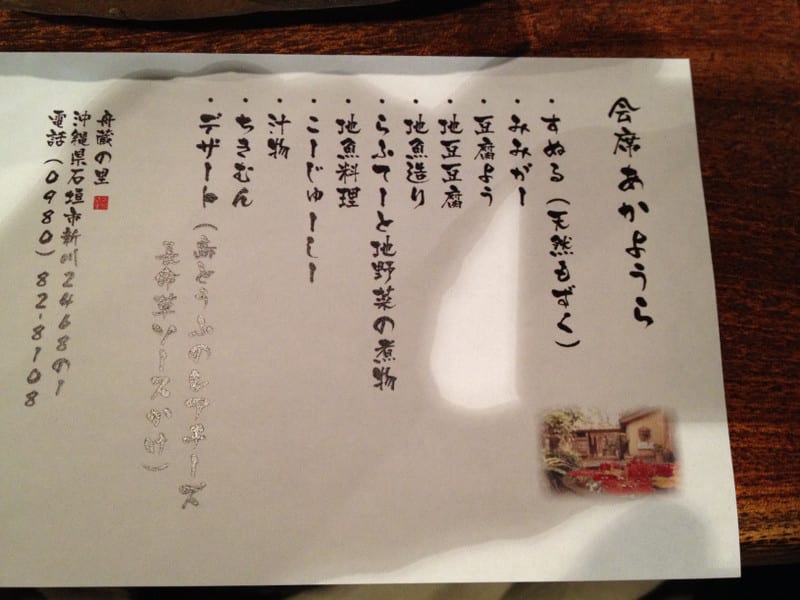 会席あかようら
・すぬる（天然もずく）
・みみがー
・豆腐よう
・地豆豆腐
・地魚造り
・らふてーと地野菜の煮物
・地魚料理
・こーじゅーしー
・汁物
・ちきむん
・デザート（島どうふのレアチーズ
長命草ソースかけ）
舟蔵の里
沖縄県石垣市新川2468の1
電話（0980）82-8108